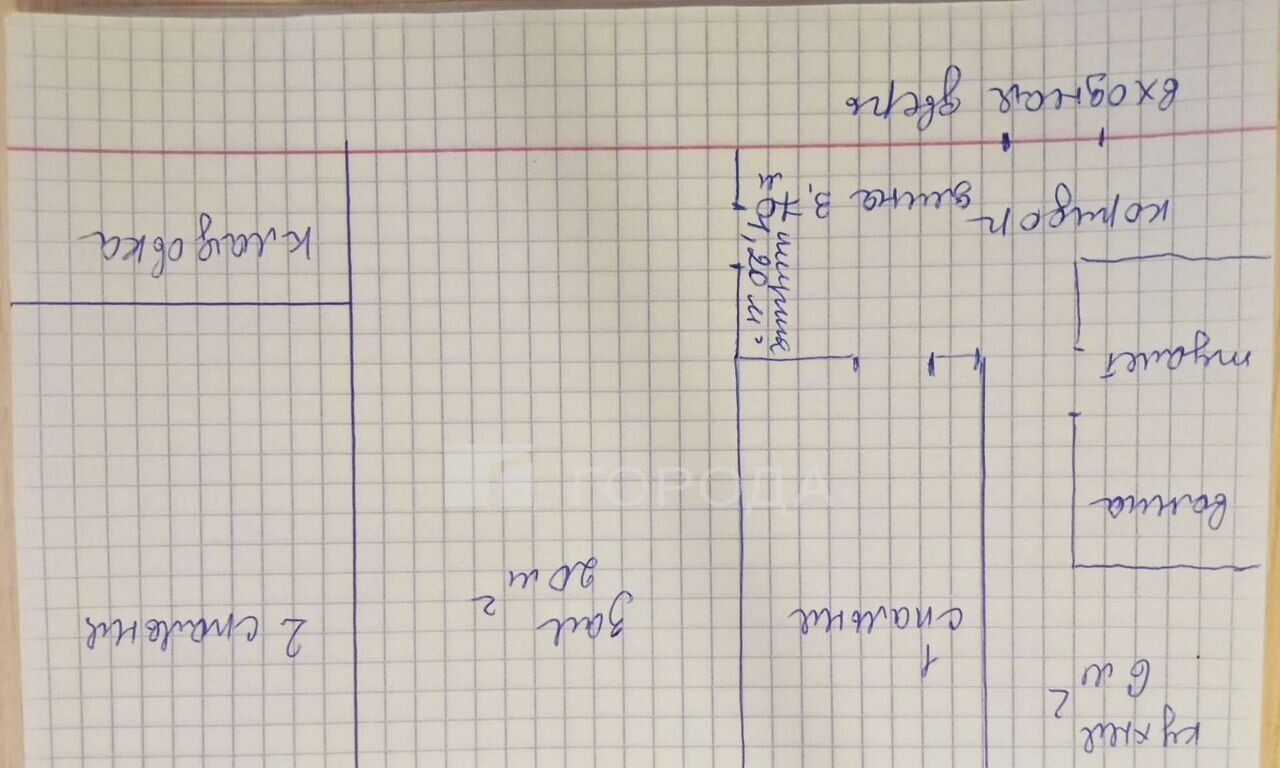 кухня
6 м²
1
спальня
зал
20 м²
2 спальня
ванна
туалет
коридор
длина 3,
ширина
1,20 м.
кладовка
входная дверь
ГОРОДА